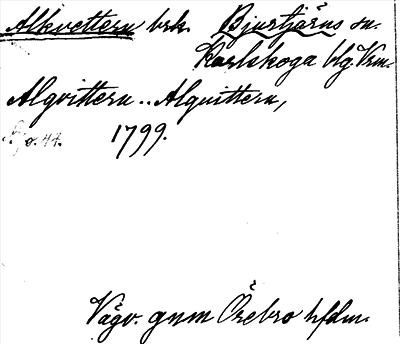 Alkvettern brk. Bjurtjärns sn.
Karlskoga blg. Vrm.
Algvittern.. Alguittern,
1799.
Vägv. gnm Örebro hfdm.